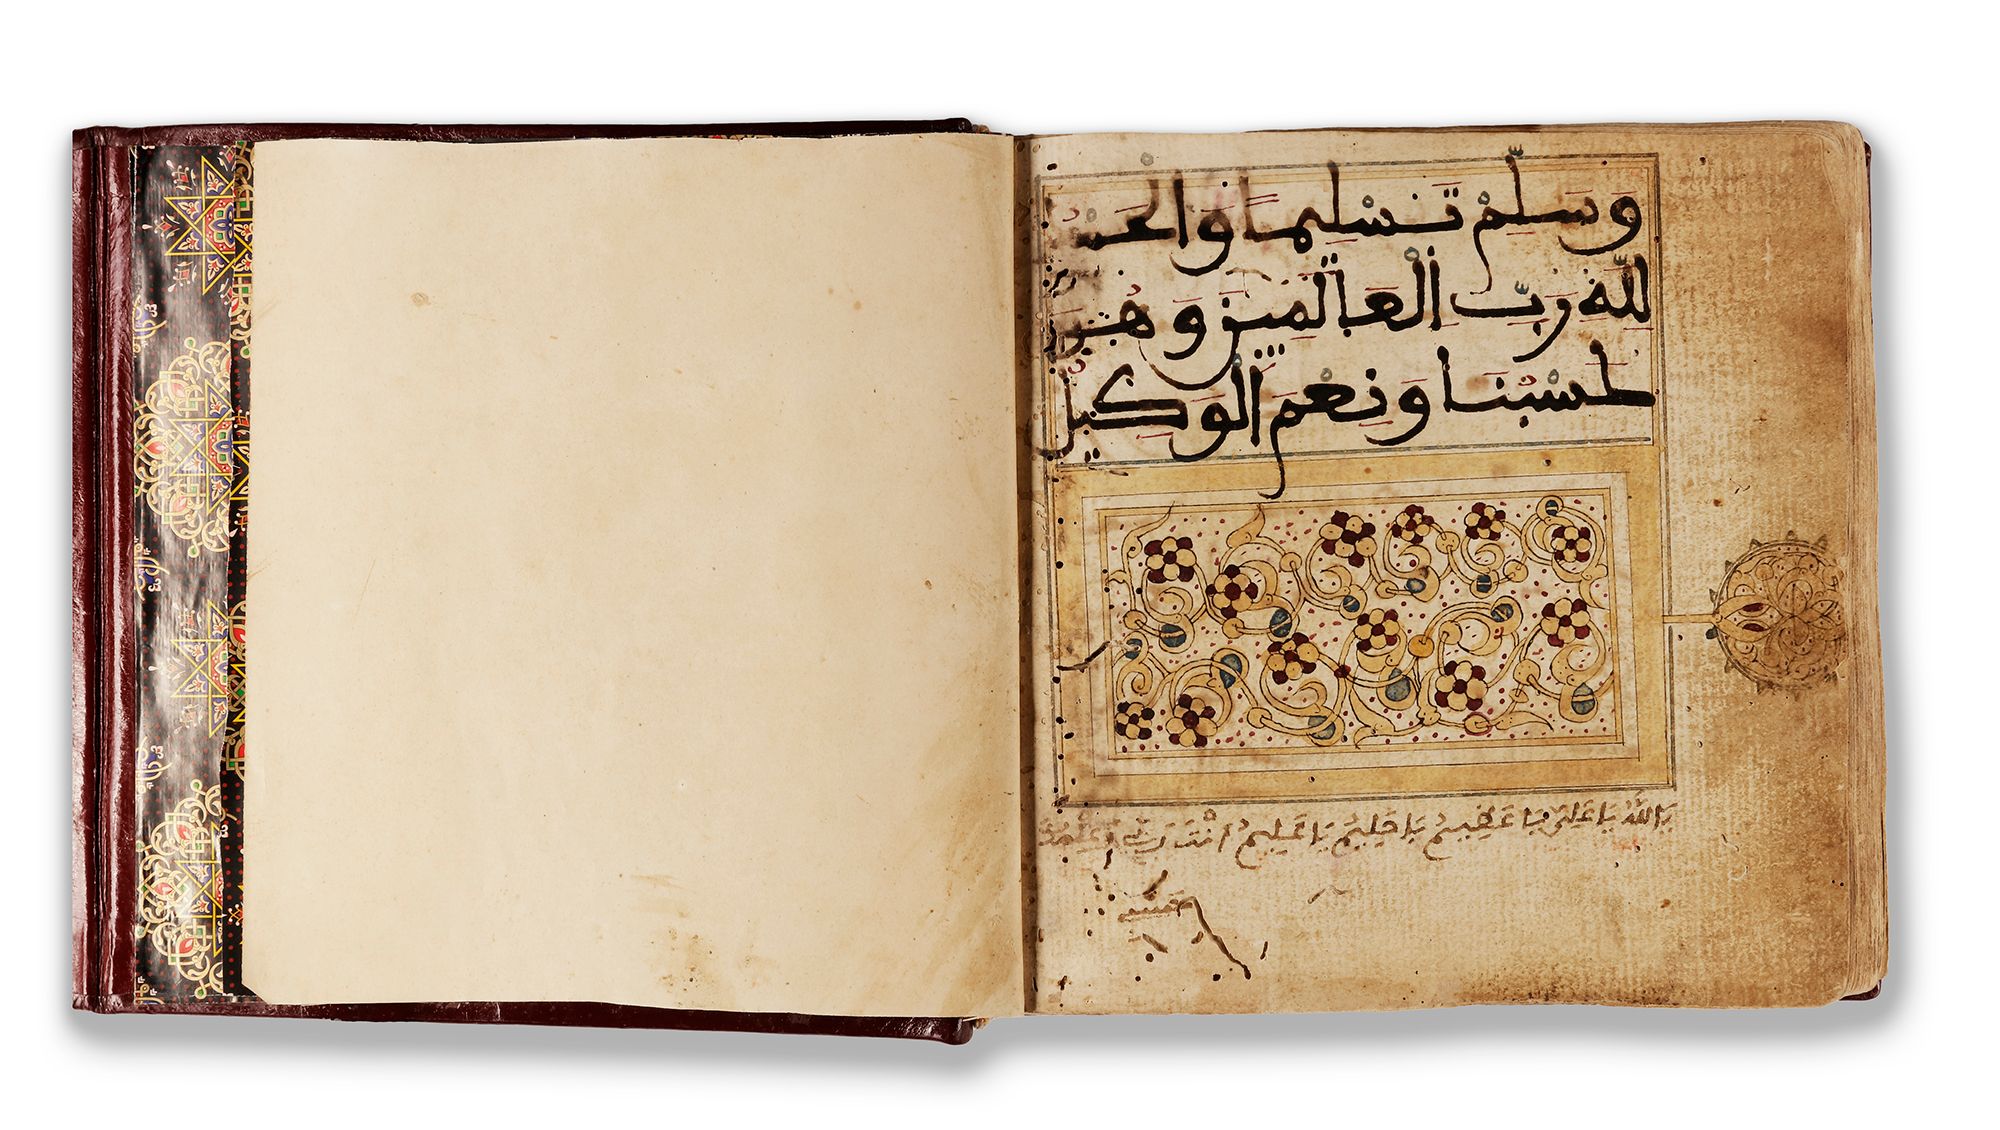 وَسَلِّمْ تَسْلِيمًا وَالْحَمْدُ
لِلَّهِ رَبِّ الْعَالَمِينَ وَهُوَ
حَسْبُنَا وَنِعْمَ الْوَكِيلُ
يَا اللَّهُ يَا عَلِيُّ يَا عَظِيمُ يَا حَلِيمُ يَا عَلِيمُ أَنْتَ رَبِّي